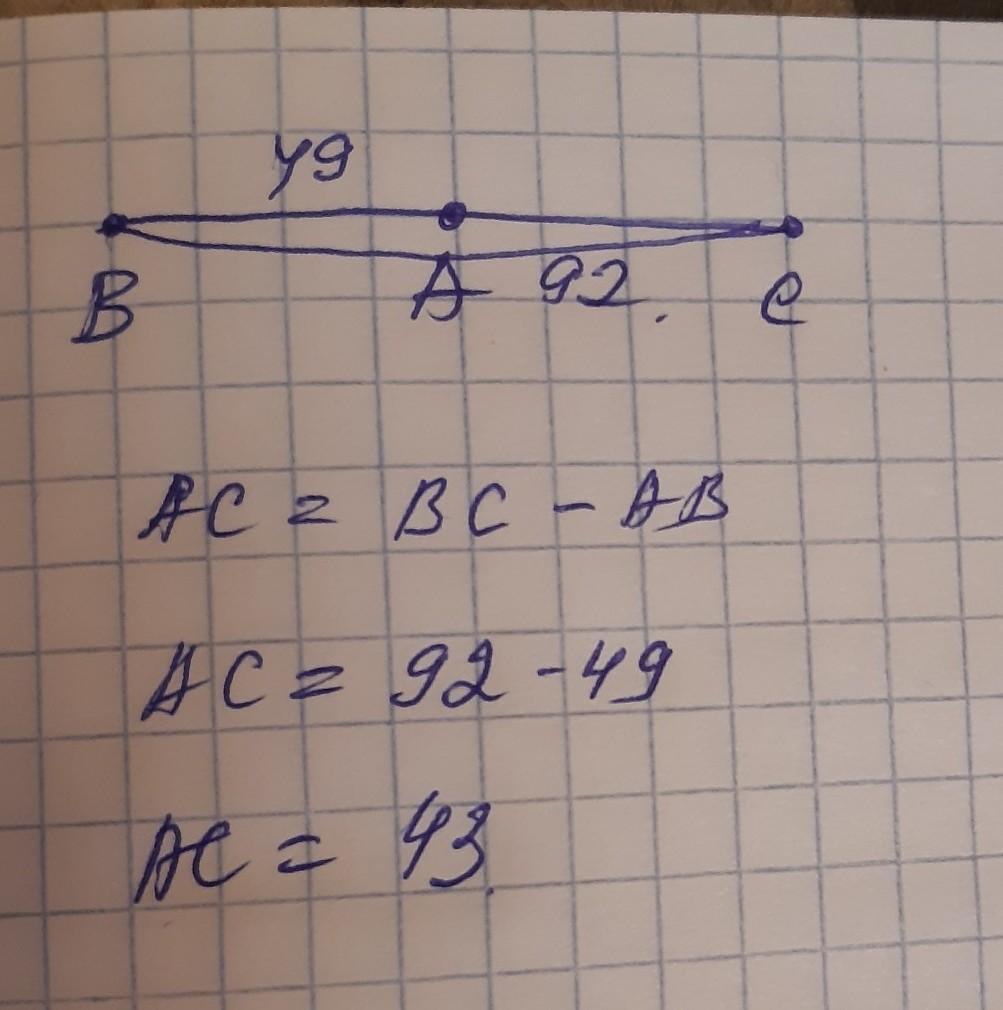 49
B A 92. C
AC = BC - AB
AC = 92 - 49
AC = 43.